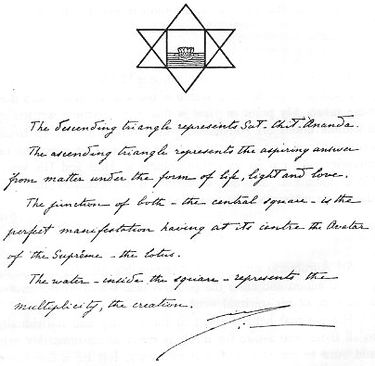 The descending triangle represents Sat-Chit-Ananda.
The ascending triangle represents the aspiring answer
from matter under the form of life, light and love.
The junction of both - the central square - is the
perfect manifestation having at its centre the Avatar
of the Supreme - the lotus.
The water - inside the square - represents the
multiplicity, the creation.